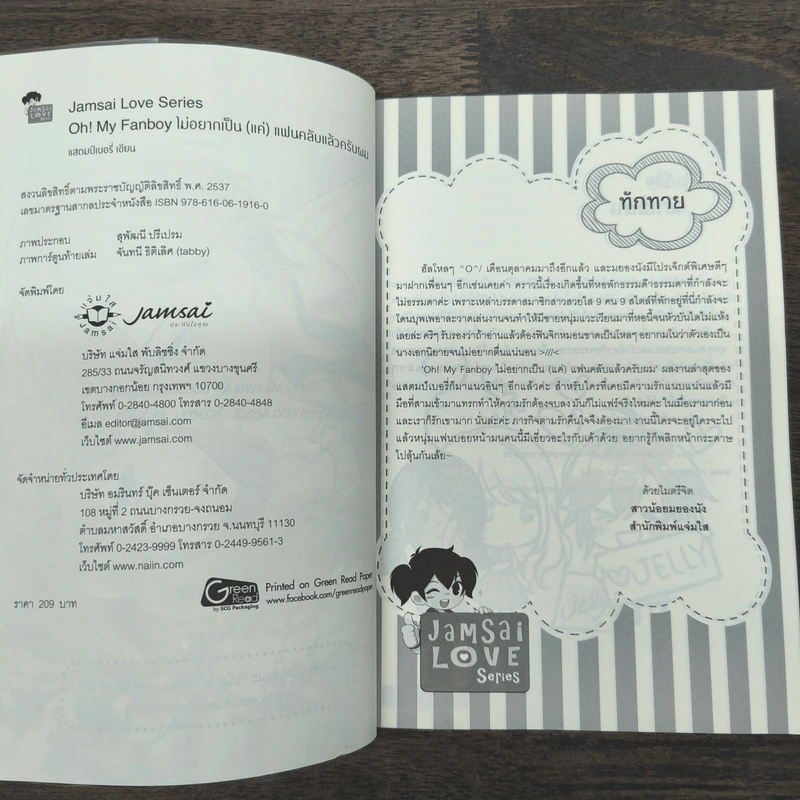 JAMSAI
LOVE
Series
Jamsai Love Series
Oh! My Fanboy ไม่อยากเป็น (แค่) แฟนคลับแล้วครับผม
แสตมป์เบอรี่ เขียน
สงวนลิขสิทธิ์ตามพระราชบัญญัติลิขสิทธิ์ พ.ศ. 2537
เลขมาตรฐานสากลประจำหนังสือ ISBN 978-616-06-1916-0
ภาพประกอบ สุพัฒนี ปรีเปรม
ภาพการ์ตูนท้ายเล่ม จันทนี ธิติเลิศ (tabby)
จัดพิมพ์โดย
แจ่มใส
Jamsai
Jamsai
ประทับใจคุณ
บริษัท แจ่มใส พับลิชชิ่ง จำกัด
285/33 ถนนจรัญสนิทวงศ์ แขวงบางขุนศรี
เขตบางกอกน้อย กรุงเทพฯ 10700
โทรศัพท์ 0-2840-4800 โทรสาร 0-2840-4848
อีเมล editor@jamsai.com
เว็บไซต์ www.jamsai.com
จัดจำหน่ายทั่วประเทศโดย
บริษัท อมรินทร์ บุ๊ค เซ็นเตอร์ จำกัด
108 หมู่ที่ 2 ถนนบางกรวย-จงถนอม
ตำบลมหาสวัสดิ์ อำเภอบางกรวย จ.นนทบุรี 11130
โทรศัพท์ 0-2423-9999 โทรสาร 0-2449-9561-3
เว็บไซต์ www.naiin.com
ราคา 209 บาท
Green
Read
by SCG Packaging
Printed on Green Read Paper
www.facebook.com/greenreadpaper
ทักทาย
ฮัลโหลๆ ^O^/ เดือนตุลาคมมาถึงอีกแล้ว และมยองนังมีโปรเจ็กต์พิเศษดีๆ
มาฝากเพื่อนๆ อีกเช่นเคยค่า คราวนี้เรื่องเกิดขึ้นที่หอพักธรรมด๊าธรรมดาที่กำลังจะ
ไม่ธรรมดาค่ะ เพราะเหล่าบรรดาสมาชิกสาวสวยใส 9 คน 9 สไตล์ที่พักอยู่ที่นี่กำลังจะ
โดนบุพเพอาละวาดเล่นงานจนทำให้มีชายหนุ่มแวะเวียนมาที่หอนี้จนหัวบันไดไม่แห้ง
เลยล่ะ คริๆ รับรองว่าถ้าอ่านแล้วต้องฟินจิกหมอนขาดเป็นโหลๆ อยากมโนว่าตัวเองเป็น
นางเอกนิยายจนไม่อยากตื่นแน่นอน >///<
'Oh! My Fanboy ไม่อยากเป็น (แค่) แฟนคลับแล้วครับผม' ผลงานล่าสุดของ
แสตมป์เบอรี่ก็มาแนวอินๆ อีกแล้วค่ะ สำหรับใครที่เคยมีความรักแนบแน่นแล้วมี
มือที่สามเข้ามาแทรกทำให้ความรักต้องจบลง มันก็ไม่แฟร์จริงไหมคะ ในเมื่อเรามาก่อน
และเราก็รักเขามาก นั่นล่ะค่ะ ภารกิจตามรักคืนใจจึงต้องมา! งานนี้ใครจะอยู่ใครจะไป
แล้วหนุ่มแฟนบอยหน้ามนคนนี้มีเอี่ยวอะไรกับเค้าด้วย อยากรู้ก็พลิกหน้ากระดาษ
ไปลุ้นกันเล้ย~
ด้วยไมตรีจิต
สาวน้อยมยองนัง
สำนักพิมพ์แจ่มใส
JELLY
JAMSAI
LOVE
Series